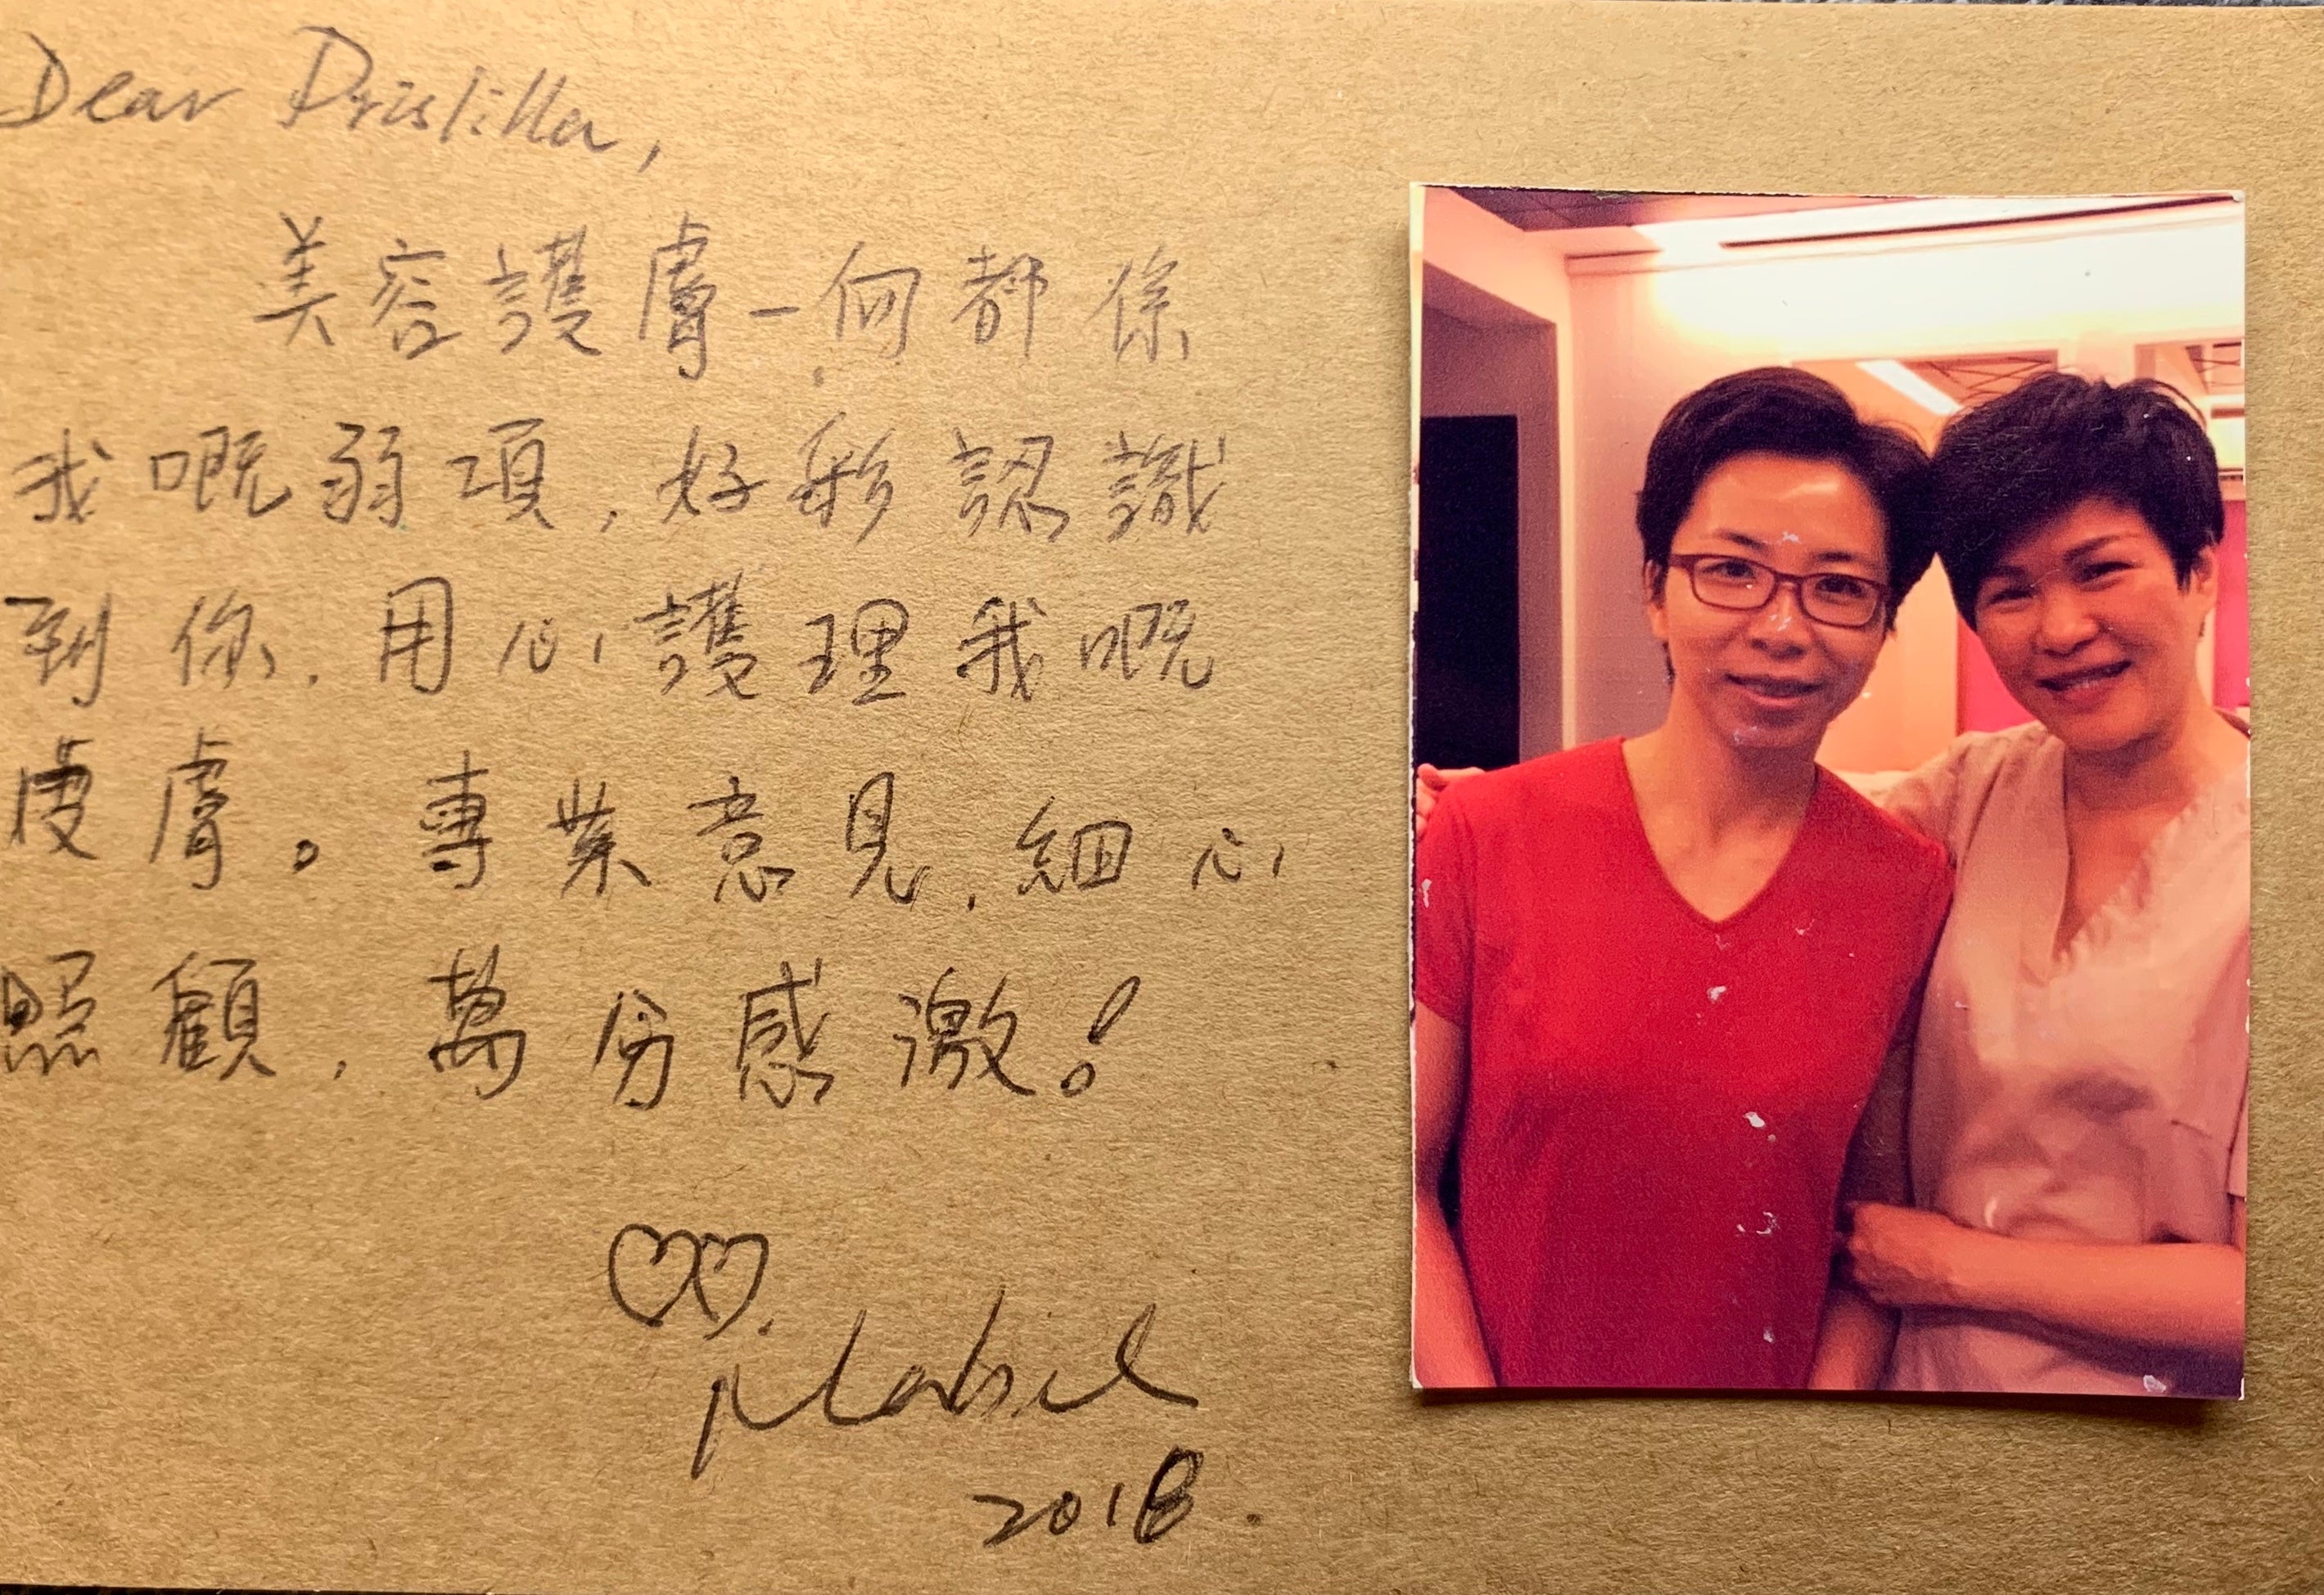 Dear Prislilla,
美容護膚一向都係
我嘅弱項，好彩認識
到你，用心護理我嘅
皮膚。專業意見，細心
照顧，萬分感激！
Mabel
2018.